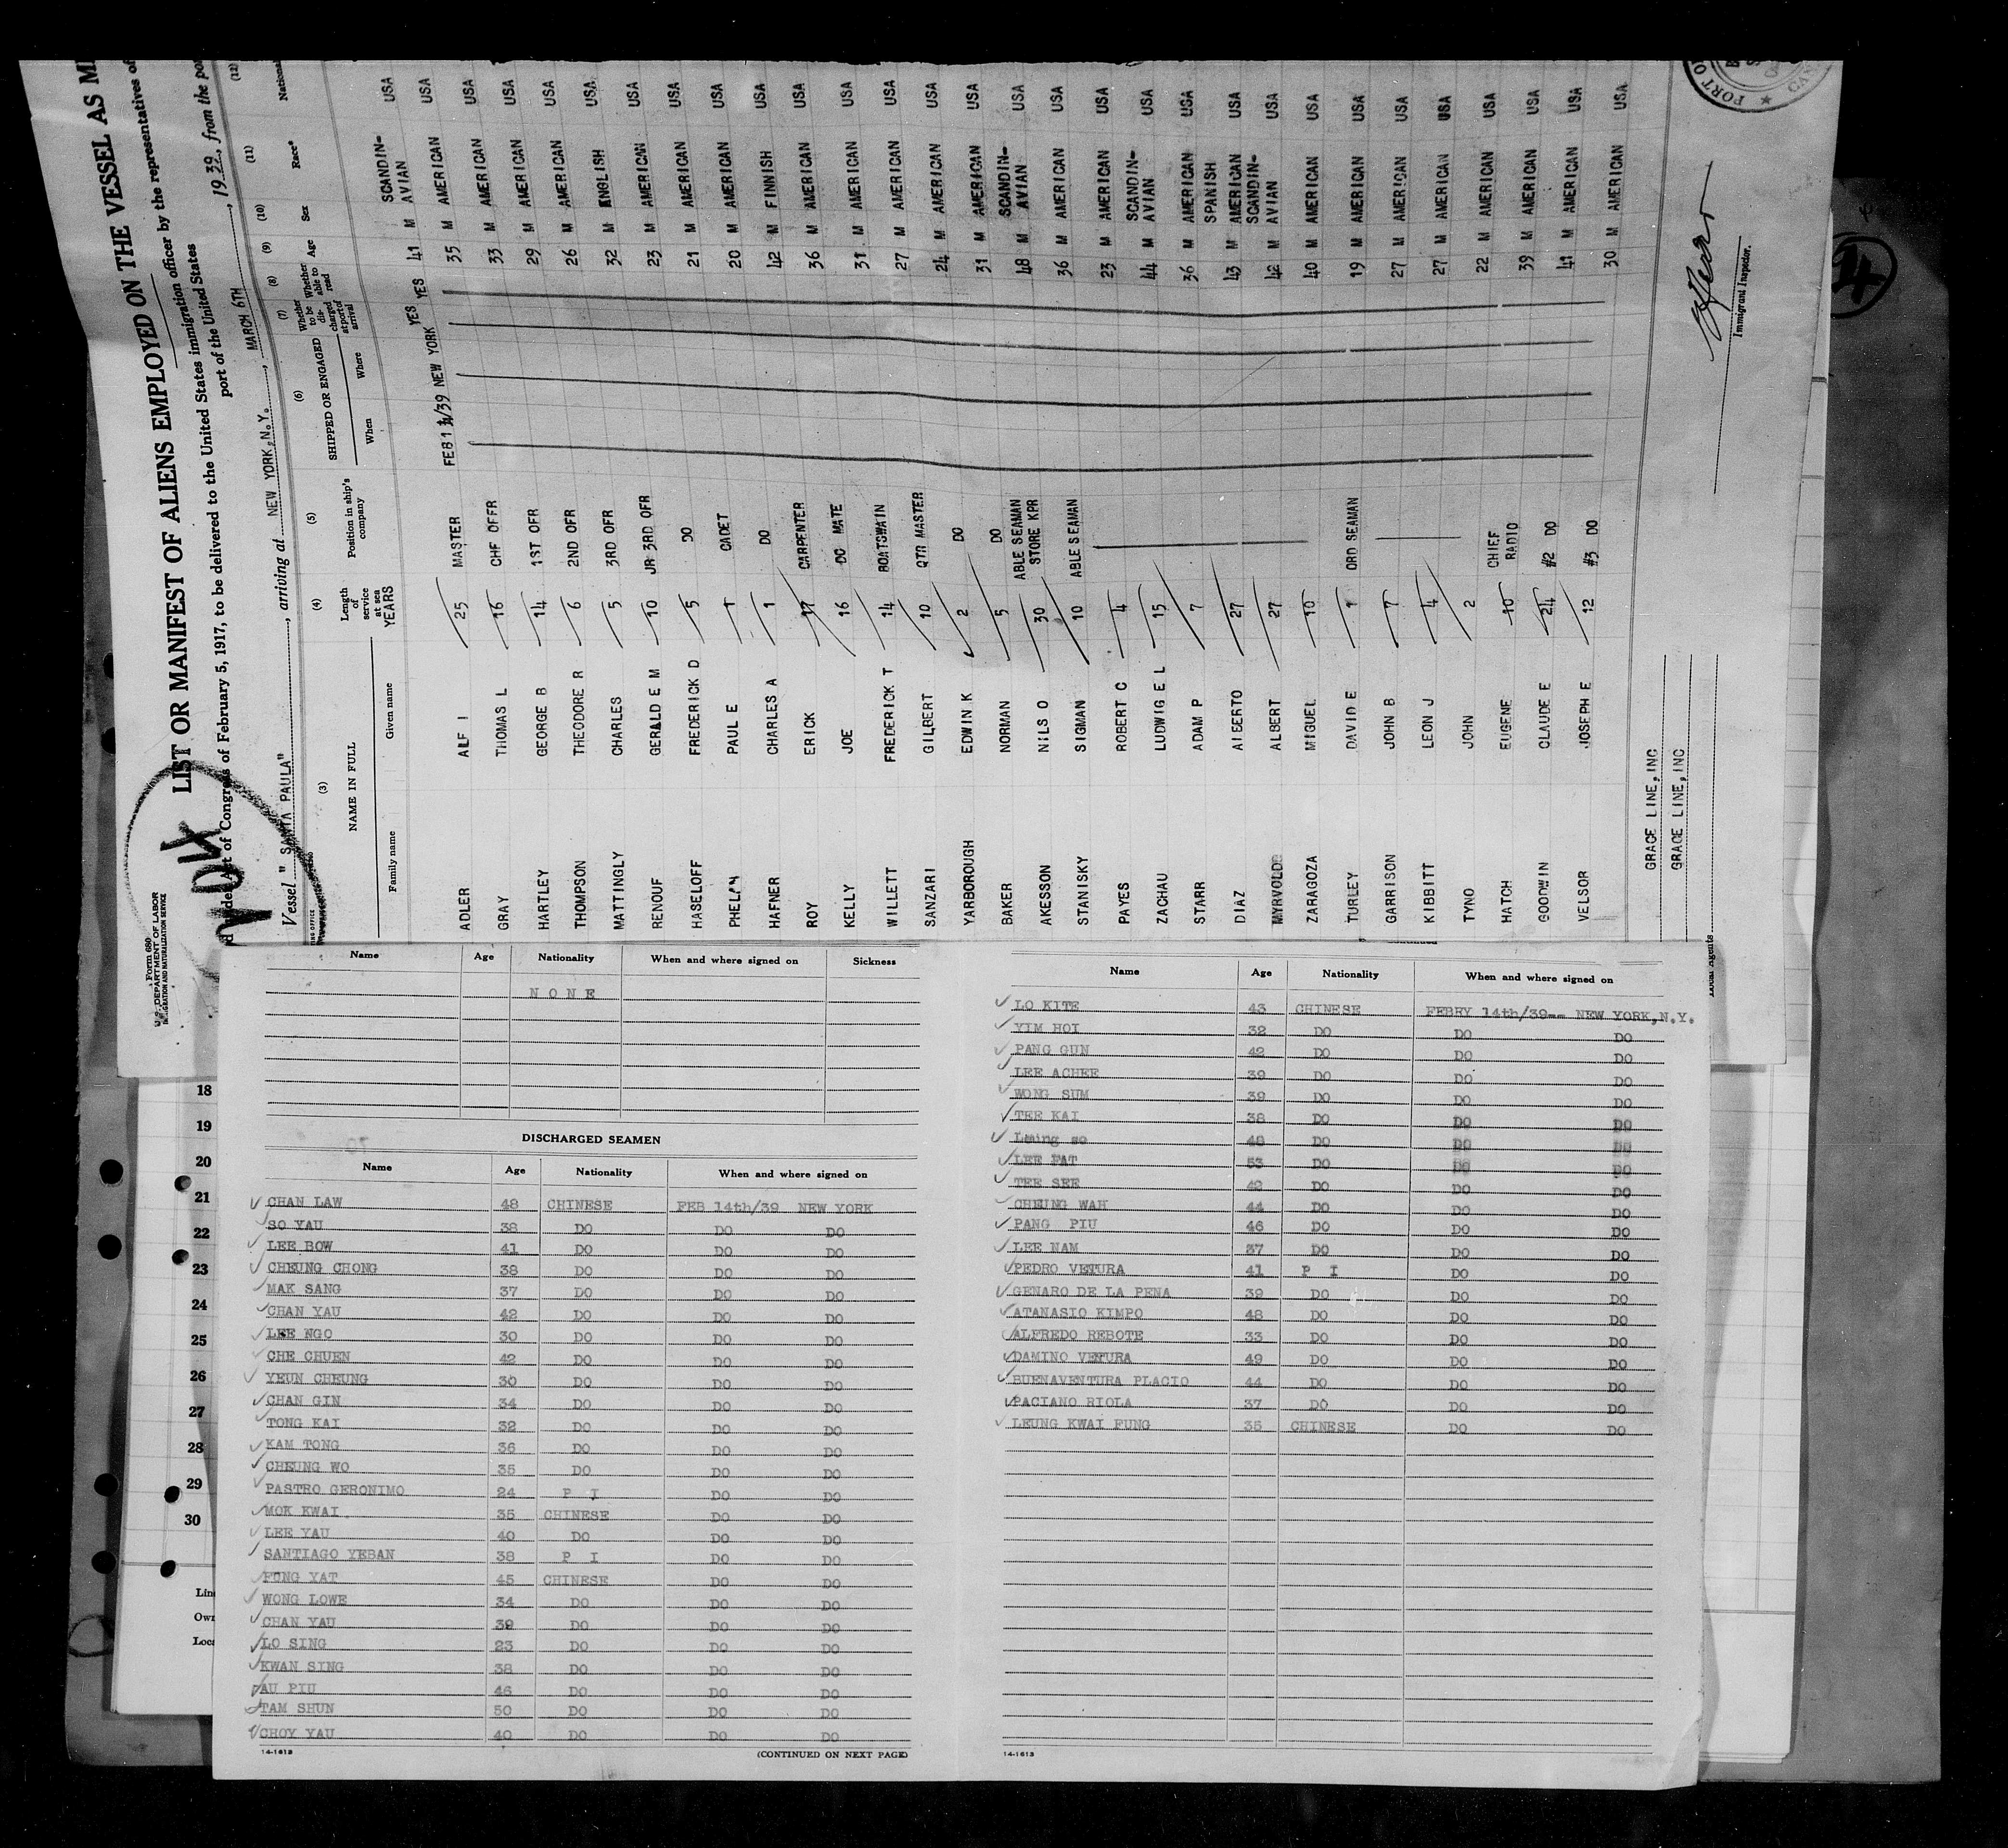 Form 680
U.S. DEPARTMENT OF LABOR
IMMIGRATION AND NATURALIZATION SERVICE
LIST OR MANIFEST OF ALIENS EMPLOYED ON THE VESSEL AS M
Act of Congress of February 5, 1917, to be delivered to the United States immigration officer by the representatives of
port of the United States
Vessel "SANTA PAULA", arriving at NEW YORK, N.Y., MARCH 6TH, 1939, from the po
(3) (4) (5) (6) (7) (8) (9) (10) (11) (12)
NAME IN FULL Length of service at sea Position in ship's company SHIPPED OR ENGAGED Whether to be discharged at port of arrival Whether able to read Age Sex Race* National
Family name Given name YEARS When Where
ADLER ALF I 25 MASTER FEB 14/39 NEW YORK YES YES 41 M SCANDIN-AVIAN USA
GRAY THOMAS L 16 CHF OFFR 35 M AMERICAN USA
HARTLEY GEORGE B 14 1ST OFR 33 M AMERICAN USA
THOMPSON THEODORE R 6 2ND OFR 29 M AMERICAN USA
MATTINGLY CHARLES 5 3RD OFR 26 M AMERICAN USA
RENOUF GERALD E M 10 JR 3RD OFR 32 M ENGLISH USA
HASELOFF FREDERICK D 5 DO 23 M AMERICAN USA
PHELAN PAUL E 1 CADET 21 M AMERICAN USA
HAFNER CHARLES A 1 DO 20 M AMERICAN USA
ROY ERICK 17 CARPENTER 42 M FINNISH USA
KELLY JOE 16 DO MATE 36 M AMERICAN USA
WILLETT FREDERICK T 14 BOATSWAIN 31 M AMERICAN USA
SANZARI GILBERT 10 QTR MASTER 27 M AMERICAN USA
YARBOROUGH EDWIN K 2 DO 24 M AMERICAN USA
BAKER NORMAN 5 DO 31 M AMERICAN USA
AKESSON NILS O 30 ABLE SEAMAN STORE KPR 48 M SCANDIN-AVIAN USA
STANISKY SIGMAN 10 ABLE SEAMAN 36 M AMERICAN USA
PAYES ROBERT C 4 23 M AMERICAN USA
ZACHAU LUDWIG E L 15 44 M SCANDIN-AVIAN USA
STARR ADAM P 7 36 M AMERICAN USA
DIAZ ALBERTO 27 43 M SPANISH AMERICAN USA
MYRVOLD ALBERT 27 42 M SCANDIN-AVIAN USA
ZARAGOZA MIGUEL 10 40 M AMERICAN USA
TURLEY DAVID E 1 ORD SEAMAN 19 M AMERICAN USA
GARRISON JOHN B 7 27 M AMERICAN USA
KIBBITT LEON J 4 27 M AMERICAN USA
TYNO JOHN 2 22 M AMERICAN USA
HATCH EUGENE 10 CHIEF RADIO 39 M AMERICAN USA
GOODWIN CLAUDE E 24 #2 DO 41 M AMERICAN USA
VELSOR JOSEPH E 12 #3 DO 30 M AMERICAN USA
GRACE LINE, INC
GRACE LINE, INC
Local Agents
Immigrant Inspector.
PORT O
Name Age Nationality When and where signed on Sickness
NONE
DISCHARGED SEAMEN
Name Age Nationality When and where signed on
CHAN LAW 48 CHINESE FEB 14th/39 NEW YORK
SO YAU 38 DO DO DO
LEE BOW 41 DO DO DO
CHEUNG CHONG 38 DO DO DO
MAK SANG 37 DO DO DO
CHAN YAU 42 DO DO DO
LEE NGO 30 DO DO DO
CHE CHUEN 42 DO DO DO
YEUN CHEUNG 30 DO DO DO
CHAN GIN 34 DO DO DO
TONG KAI 32 DO DO DO
KAM TONG 36 DO DO DO
CHEUNG WO 35 DO DO DO
PASTRO GERONIMO 24 P I DO DO
MOK KWAI 35 CHINESE DO DO
LEE YAU 40 DO DO DO
SANTIAGO YEBAN 38 P I DO DO
FUNG YAT 45 CHINESE DO DO
WONG LOWE 34 DO DO DO
CHAN YAU 39 DO DO DO
LO SING 23 DO DO DO
KWAN SING 38 DO DO DO
AU PIU 46 DO DO DO
TAM SHUN 50 DO DO DO
CHOY YAU 40 DO DO DO
14-1613 (CONTINUED ON NEXT PAGE)
Name Age Nationality When and where signed on
LO KITE 43 CHINESE FEBRY 14th/39-- NEW YORK,N.Y.
YIM HOI 32 DO DO DO
PANG GUN 42 DO DO DO
LEE ACHEE 39 DO DO DO
WONG SUM 39 DO DO DO
TEE KAI 38 DO DO DO
Leung so 48 DO DO DO
LEE FAT 53 DO DO DO
TEE SEE 42 DO DO DO
CHEUNG WAH 44 DO DO DO
PANG PIU 46 DO DO DO
LEE NAM 37 DO DO DO
PEDRO VETURA 41 P I DO DO
GENARO DE LA PENA 39 DO DO DO
ATANASIO KIMPO 48 DO DO DO
ALFREDO REBOTE 33 DO DO DO
DAMINO VETURA 49 DO DO DO
BUENAVENTURA PLACIO 44 DO DO DO
PACIANO RIOLA 37 DO DO DO
LEUNG KWAI FUNG 35 CHINESE DO DO
14-1613
18
19
20
21
22
23
24
25
26
27
28
29
30